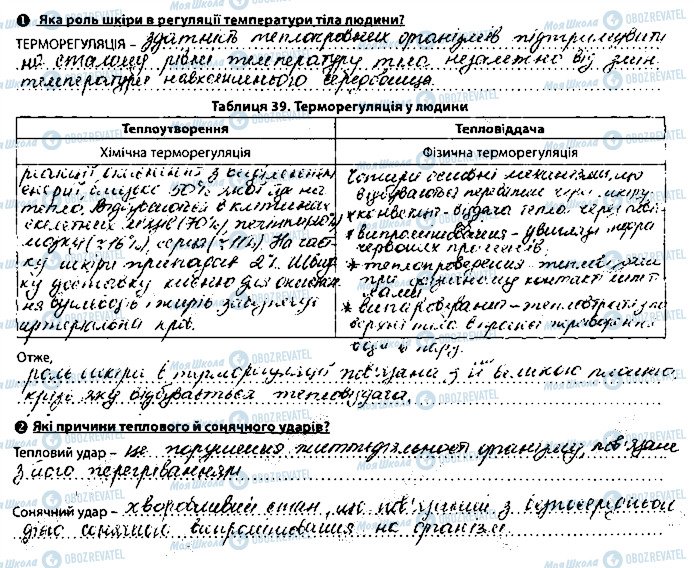 ❶ Яка роль шкіри в регуляції температури тіла людини?
ТЕРМОРЕГУЛЯЦІЯ – здатність теплокровних організмів підтримувати
на сталому рівні температуру тіла незалежно від змін
температури навколишнього середовища.
Таблиця 39. Терморегуляція у людини
Теплоутворення
Тепловіддача
Хімічна терморегуляція
Фізична терморегуляція
реакції окиснення з виділенням
енергії, близько 50% якої йде на
тепло. Відбувається в клітинах
скелетних м'язів (70%), печінки,
мозку (≈16%), серця (≈11%). На част-
ку шкіри припадає 2%. Швид-
ку доставку кисню для окисне-
ння вуглеводів і жирів забезпечує
артеріальна кров.
Чотири основні механізми, що
відбуваються переважно через шкіру
конвекція - віддача тепла через
випромінювання - у вигляді інфра
червоних променів
* теплопроведення
при фізичному контакті
* випаровування - тепловтрата
поверхні тіла в процесі перетворення
води в пару.
Отже,
роль шкіри в терморегуляції пов'язана з її великою площею
крізь яку відбувається тепловіддача.
❷ Які причини теплового й сонячного ударів?
Тепловий удар – це порушення життєдіяльності організму, пов'язане
з його перегріванням
Сонячний удар – хворобливий стан, що пов'язаний з безпосередньою
дією сонячного випромінювання на організм.